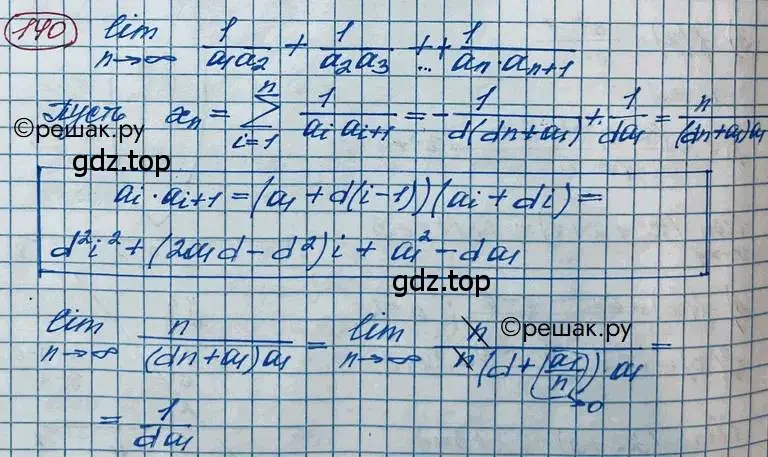 140 lim n→∞ 1/(a₁a₂) + 1/(a₂a₃) + ... + 1/(aₙ·aₙ₊₁)
Пусть xₙ = ∑ i=1 n 1/(aᵢ aᵢ₊₁) = -1/(d(dn+a₁)) + 1/(da₁) = n/((dn+a₁)a₁)
©решак.ру
gdz.top
aᵢ·aᵢ₊₁ = (a₁ + d(i-1))(aᵢ + di) =
d²i² + (2a₁d - d²)i + a₁² - da₁
gdz.top
lim n→∞ n/((dn+a₁)a₁) = lim n→∞ n/(n(d+(a₁/n))·a₁) =
©решак.ру
→0
= 1/(da₁)